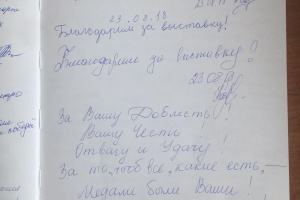 23.08.18
Благодарим за выставку!
Благодарим за выставку!
23.08.18
За Вашу Доблесть!
Вашу Честь!
Отвагу и Удачу!
За то, чтоб все, какие есть, —
Медали были Ваши!